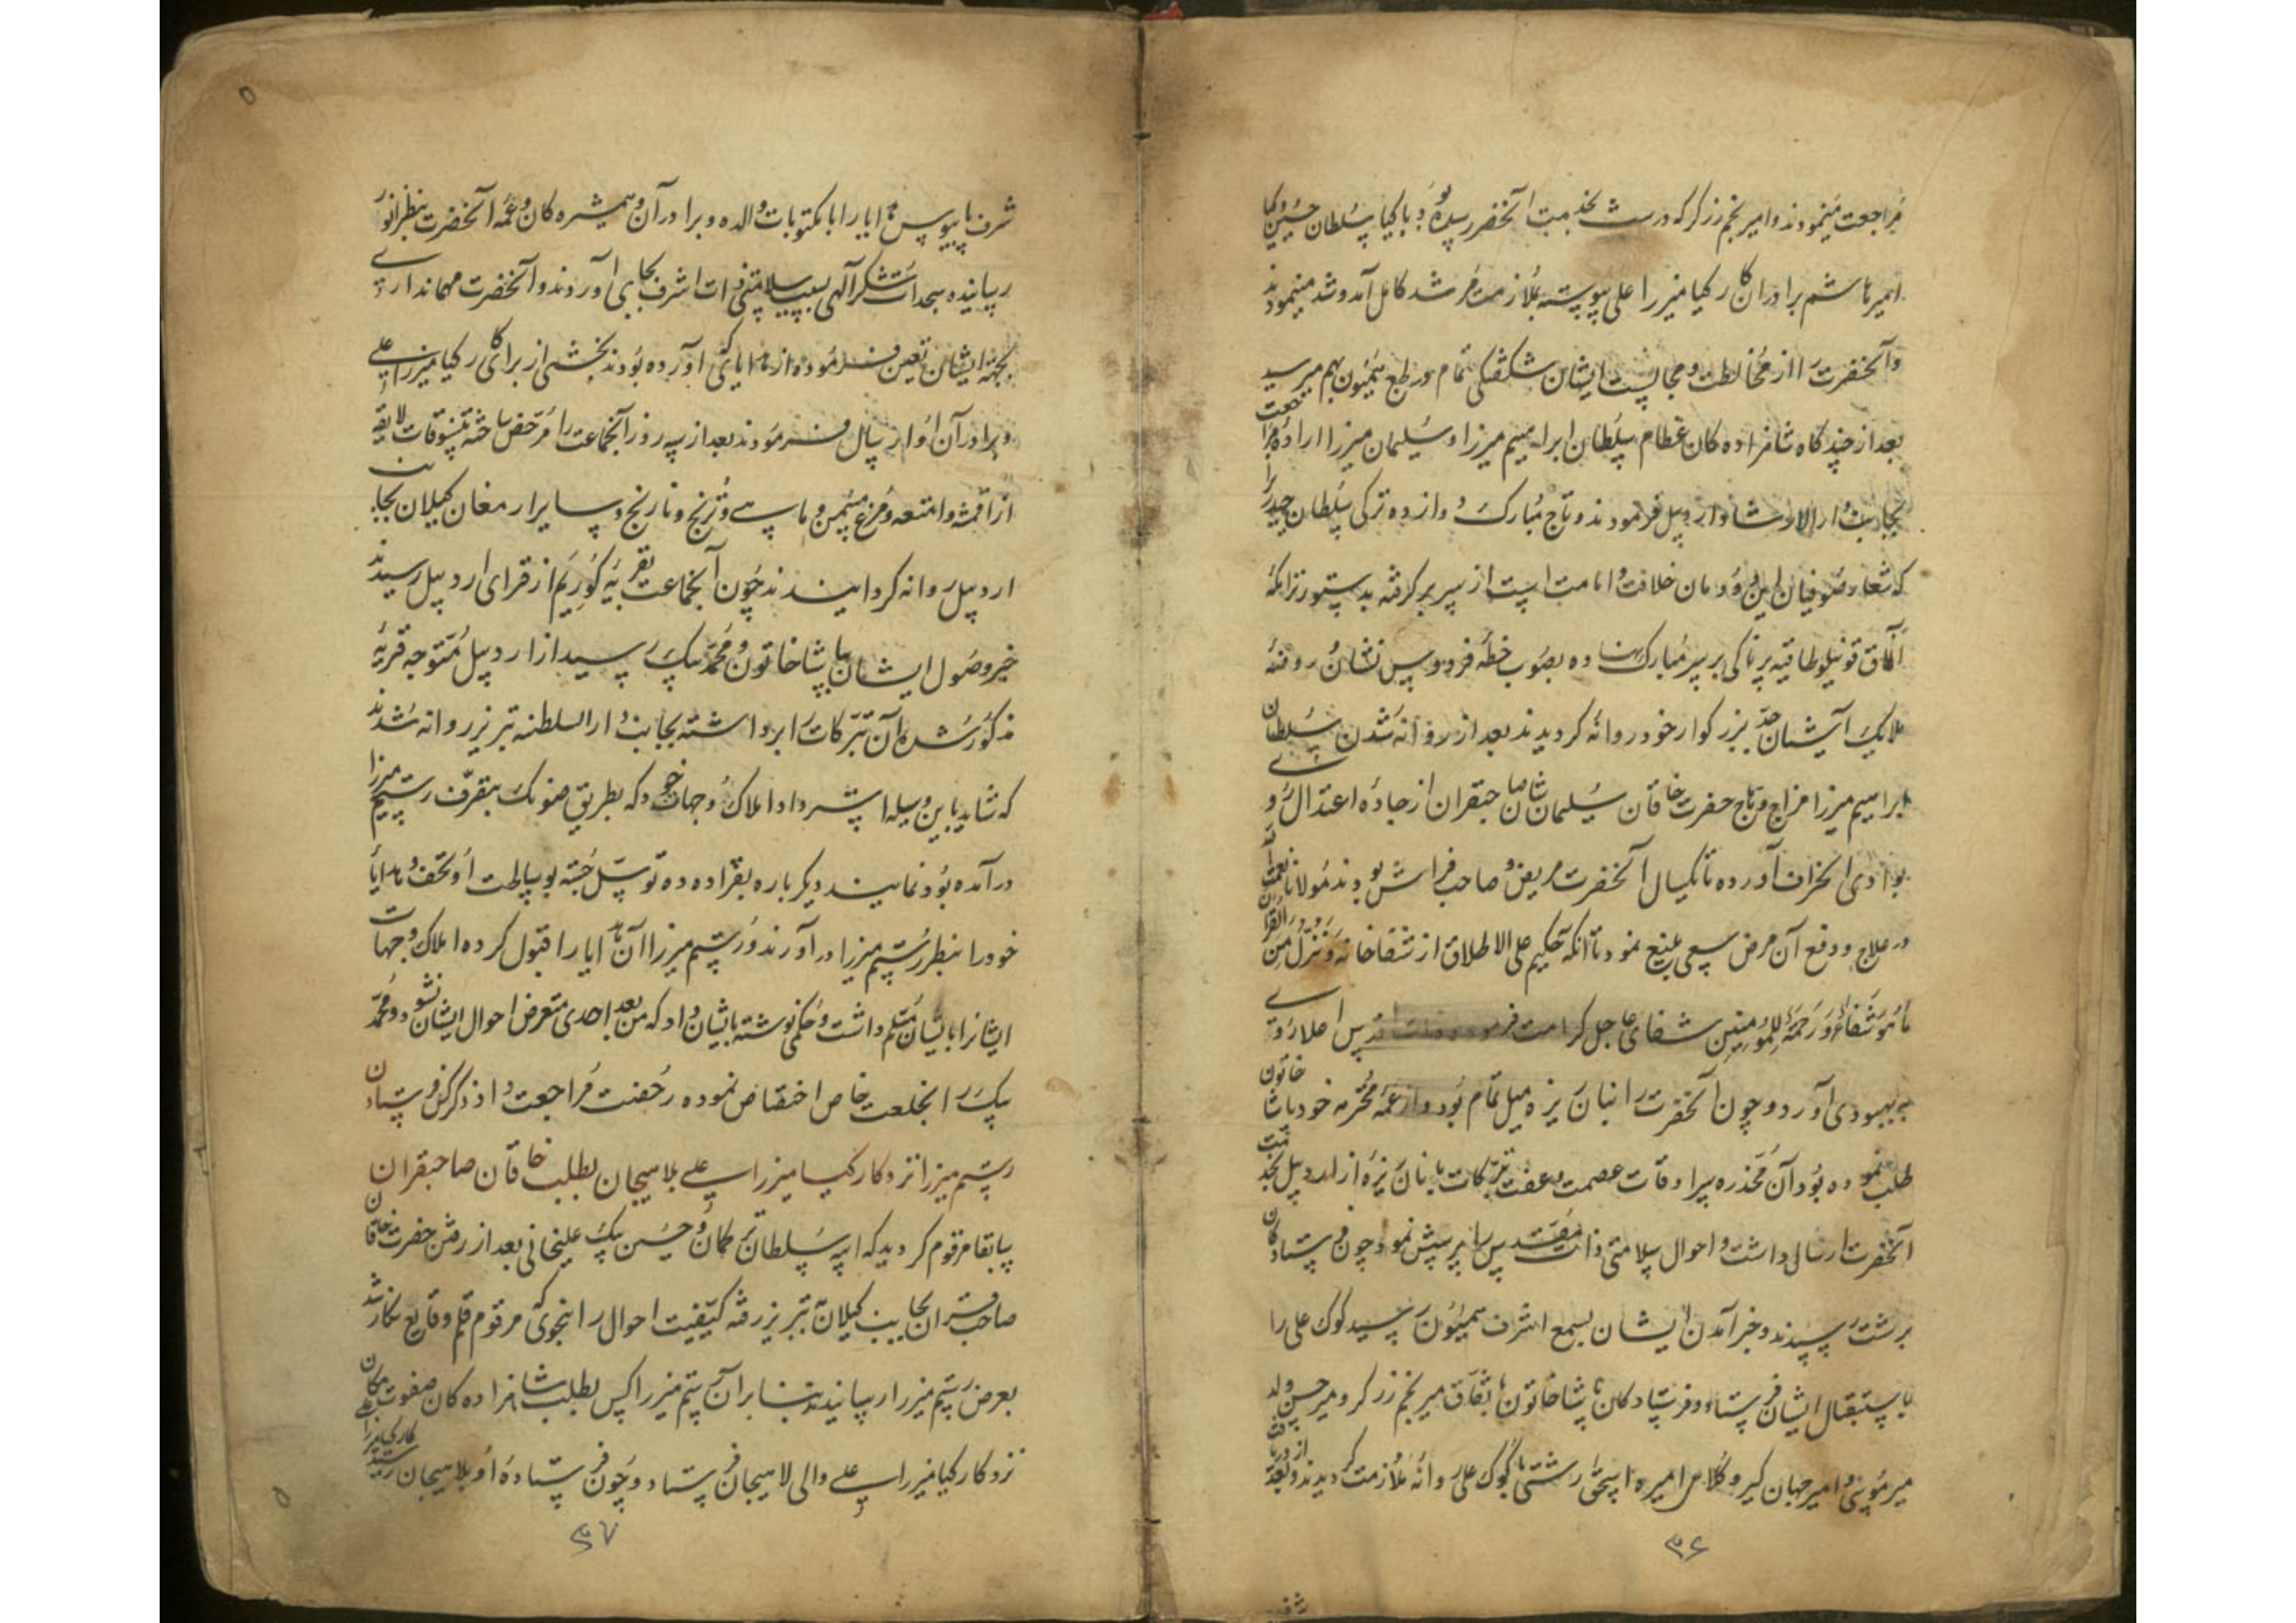 مراجعت مینمودند و امیر نجم زرگر که در رشت بخدمت آنحضرت رسیده بود با کیا سلطان حسین و کیا
امیر هاشم برادران کارکیا میرزا علی پیوسته بملازمت مرشد کامل آمد و شد مینمودند
و آنحضرت را از مخالطت و مجالست ایشان شکفتگی تمام در طبع همیون بهم میرسید
بعد از چند گاه شاهزاده کان عظام سلطان ابراهیم میرزا و سلیمان میرزا اراده مراجعت
بجانب دار الارشاد اردبیل فرمودند و تاج مبارک دوازده ترکی سلطان حیدر را
که شعار صوفیان این دودمان خلافت و امامت است از سر بر گرفته بدستور تراکمه
آقاق قوینلو طاقیه برناکی بر سر مبارک نهاده بصوب خطه فردوس نشان روضه
ملایک آشیان جد بزرگوار خود روانه گردیدند بعد از روانه شدن سلطان
ابراهیم میرزا مزاج وهاج حضرت خاقان سلیمان شان صاحبقران از جاده اعتدال رو
بوادی انحراف آورده تا یکسال آنحضرت مریض و صاحب فراش بودند مولانا نعمت الله
در علاج و دفع آن مرض سعی بلیغ نمود تا آنکه حکیم علی الاطلاق از شفاخانه وَنُنَزِّلُ مِنَ القُرآن
مَا هُوَ شِفَاءٌ وَ رَحْمَةٌ لِلْمُؤمِنین شفای عاجل کرامت فرموده ذات اقدس اعلا روی
به بهبودی آورد و چون آنحضرت را بنان یزه میل تمام بود و از عمه محترمه خود پاشا خاتون
طلب نموده بود آن مخدره سرادقات عصمت و عفت تبرکات با نان یزه از اردبیل بخدمت
آنحضرت ارسال داشت و احوال سلامتی ذات مقدس را پرسش نمود چون فرستاده کان
برشت رسیدند و خبر آمدن ایشان بسمع اشرف همیون رسید کوک علی را
باستقبال ایشان فرستاد و فرستاده کان پاشا خاتون باتفاق میر نجم زرگر و میر حسن ولد
میر موسی و امیر جهان گیر و کلاس امیره اسحق رشتی با کوک علی روانه ملازمت گردیدند و بعد از دریافت
۳۶
شرف پابوس هدایا را با مکتوبات والده و برادران و همشیره کان و عمه آنحضرت بنظر انور
رسانیده سجدات شکر الهی بسبب سلامتی ذات اشرف بجای آوردند و آنحضرت مهمانداری
بجهة ایشان تعین فرموده و از هدایای که آورده بودند بخشی از برای کارکیا میرزا علی
و برادران او ارسال فرمودند بعد از سه روز آنجماعت را مرخص ساخته تنسوقات لایقه
از اقمشه و امتعه و مرغ مسمن و ماهی و ترنج و نارنج و سایر ارمغان گیلان بجانب
اردبیل روانه گردانیدند چون آنجماعت بقریه گوریم از قرای اردبیل رسیدند
خبر وصول ایشان بپاشا خاتون و محمد بیک رسید از اردبیل متوجه قریه
مذکور شده آن تبرکات را برداشته بجانب دار السلطنه تبریز روانه شدند
که شاید باین وسیله استرداد املاک و جهات خود که بطریق صونک بتصرف رستم میرزا
در آمده بود نمایند دیگر باره بقرا دده توسل جسته بوساطت او تحف و هدایا
خود را بنظر رستم میرزا در آورند و رستم میرزا آن هدایا را قبول کرده املاک و جهات
ایشانرا بایشان مسلم داشت و حکمی نوشته بایشان داد که من بعد احدی متعرض احوال ایشان نشود و محمد
بیک را بخلعت خاص اختصاص نموده رخصت مراجعت داد ذکر کس فرستادن
رستم میرزا نزد کارکیا میرزا علی بلاهیجان بطلب خاقان صاحبقران
سابقا مرقوم گردید که ایبه سلطان ترکمان و حسن بیک علیخانی بعد از رفتن حضرت خاقان
صاحبقران بجانب گیلان تبریز رفته کیفیت احوال را بنحوی که مرقوم قلم وقایع نگار شد
بعرض رستم میرزا رسانیدند بنابر آن رستم میرزا کس بطلب شاهزاده کان صفوت مکان
نزد کارکیا میرزا علی والی لاهیجان فرستاد و چون فرستاده او بلاهیجان رسید کارکیا میرزا علی
۳۷